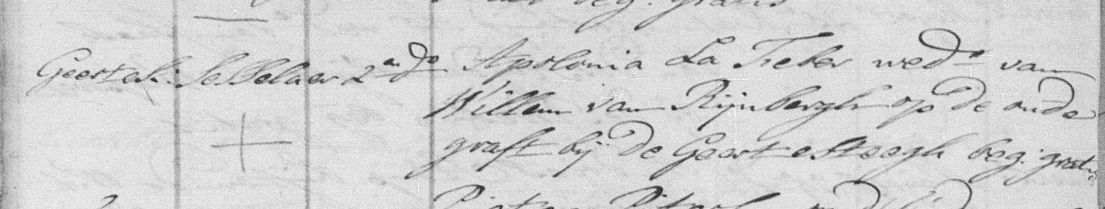 beg: gratis
Geertek: Selelaer 2en do Apolonia La Feber wedo van
Willem van Rijnbergh op de oude
graft bij de Geerte steegh beg: gratis
Pieter